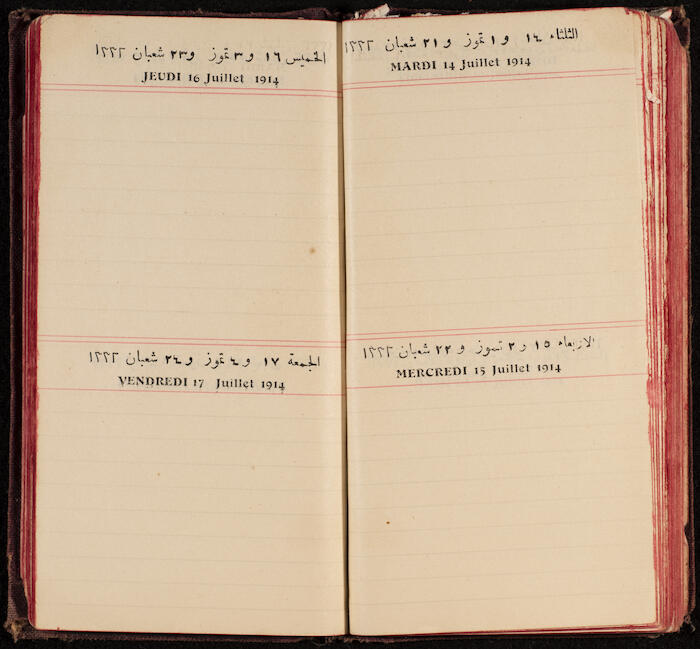 الثلثاء ١٤ و ١ تموز و ٢١ شعبان ١٣٣٢
MARDI 14 Juillet 1914
الاربعاء ١٥ و ٢ تموز و ٢٢ شعبان ١٣٣٢
MERCREDI 15 Juillet 1914
الخميس ١٦ و ٣ تموز و ٢٣ شعبان ١٣٣٢
JEUDI 16 Juillet 1914
الجمعة ١٧ و ٤ تموز و ٢٤ شعبان ١٣٣٢
VENDREDI 17 Juillet 1914